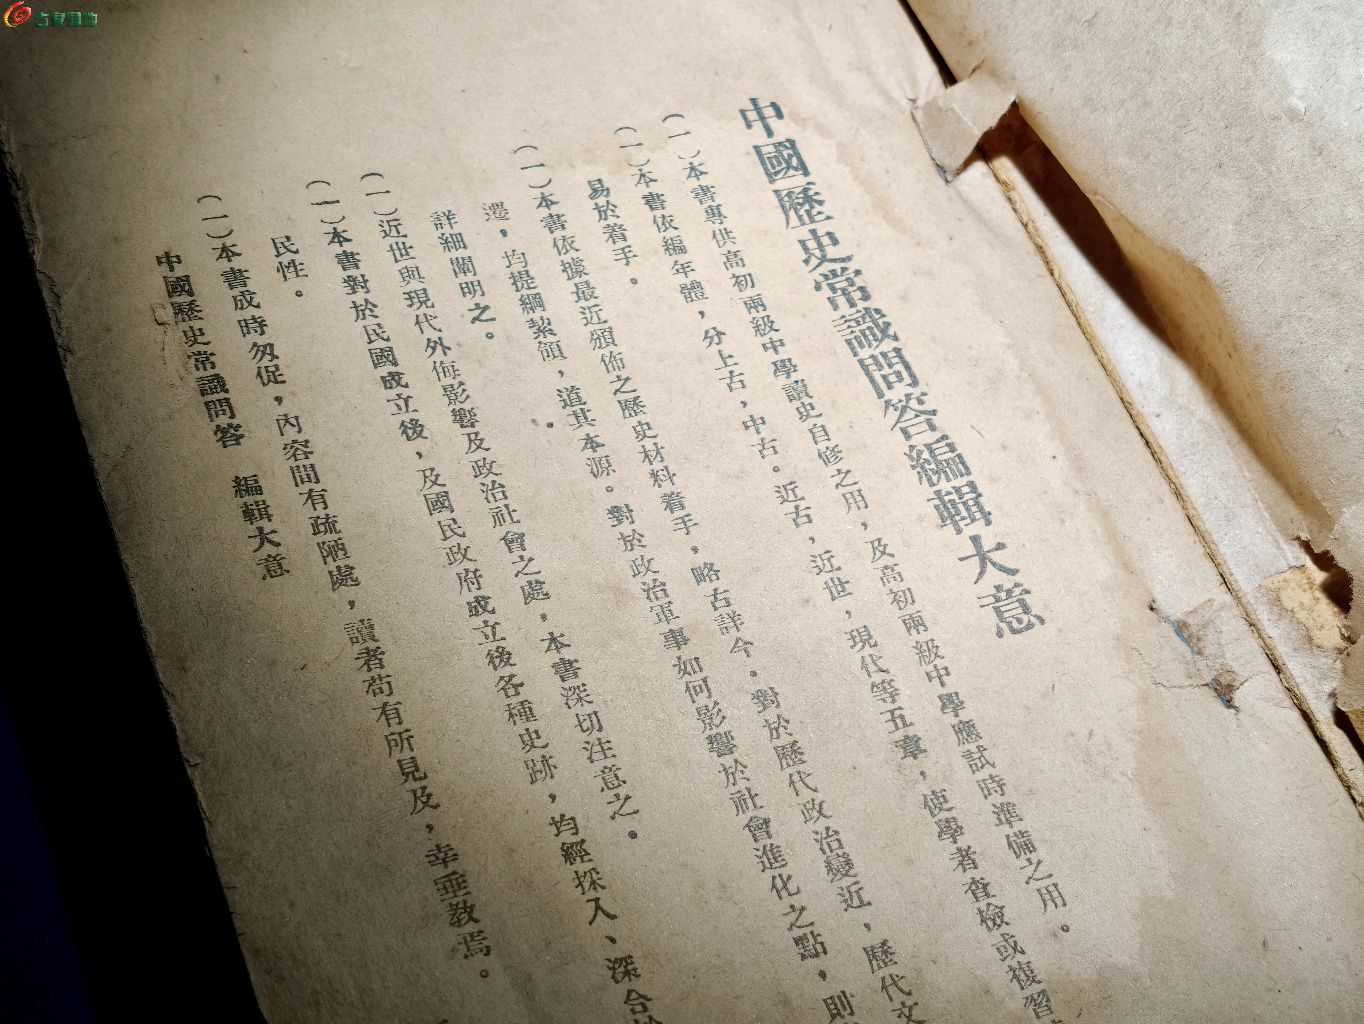 中國歷史常識問答編輯大意
(一)本書專供高初兩級中學讀史自修之用,及高初兩級中學應試時準備之用。
(一)本書依編年體,分上古,中古。近古,近世,現代等五章,使學者查檢或複習
易於着手。
(一)本書依據最近頒佈之歷史材料着手,略古詳今。對於歷代政治變近,歷代文
遷,均提綱絜領,道其本源。對於政治軍事如何影響於社會進化之點,則
詳細闡明之。
(一)近世與現代外侮影響及政治社會之處,本書深切注意之。
(一)本書對於民國成立後,及國民政府成立後各種史跡,均經採入、深合於
民性。
(一)本書成時匆促,內容間有疏陋處,讀者苟有所見及,幸垂教焉。
中國歷史常識問答 編輯大意
古泉園地